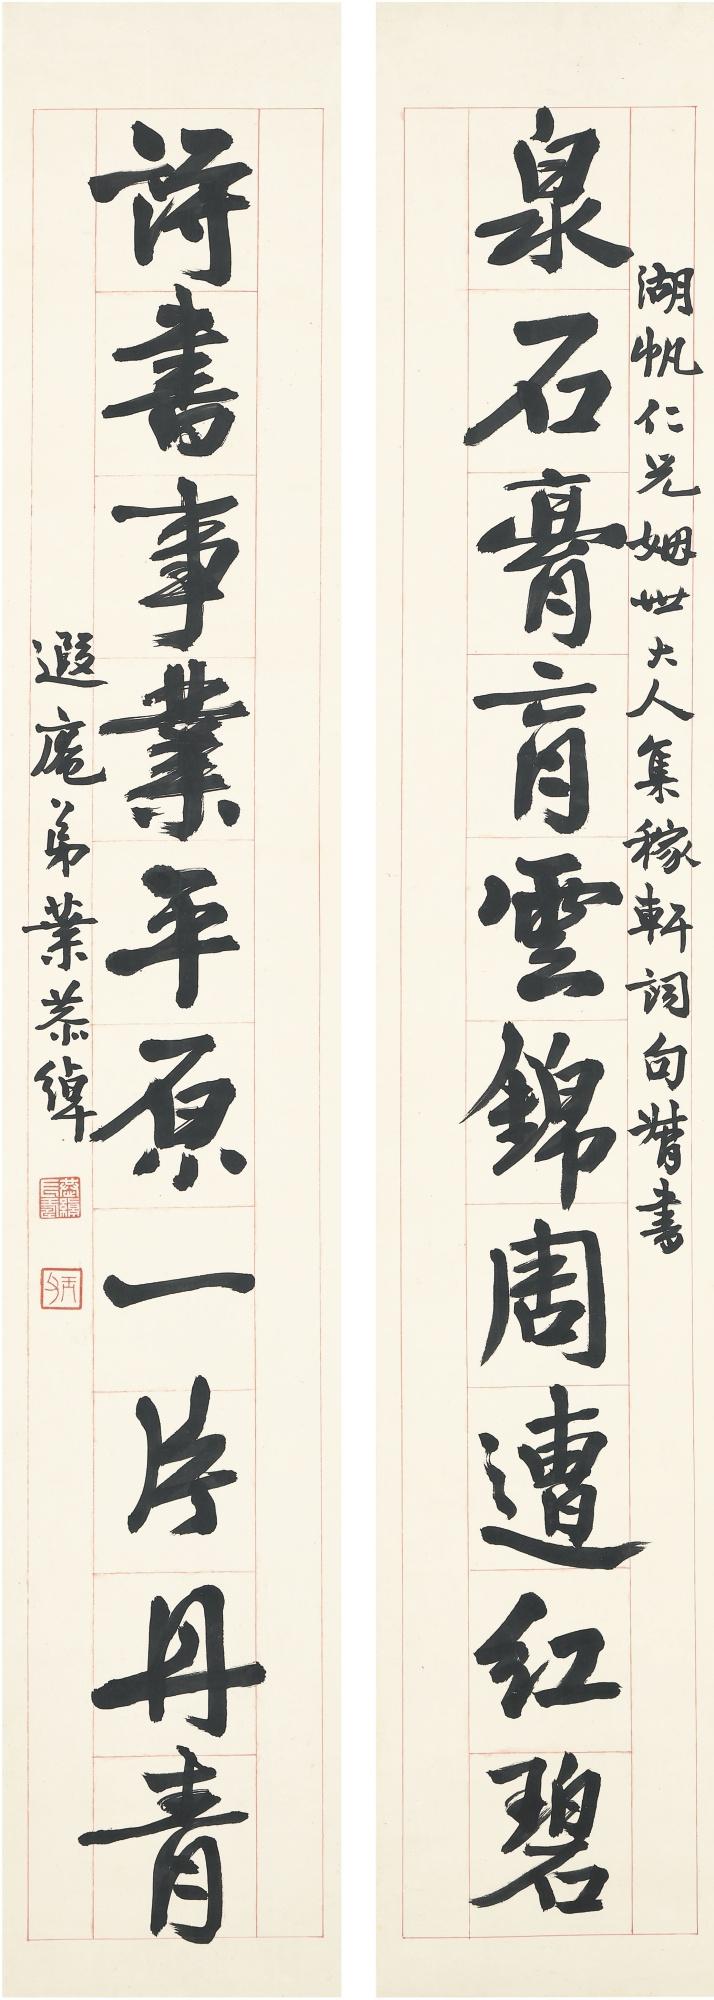 湖帆仁兄姻世大人集稼軒詞句督書
泉石膏肓雲錦周遭紅碧
詩書事業平原一片丹青
遐庵弟葉恭綽